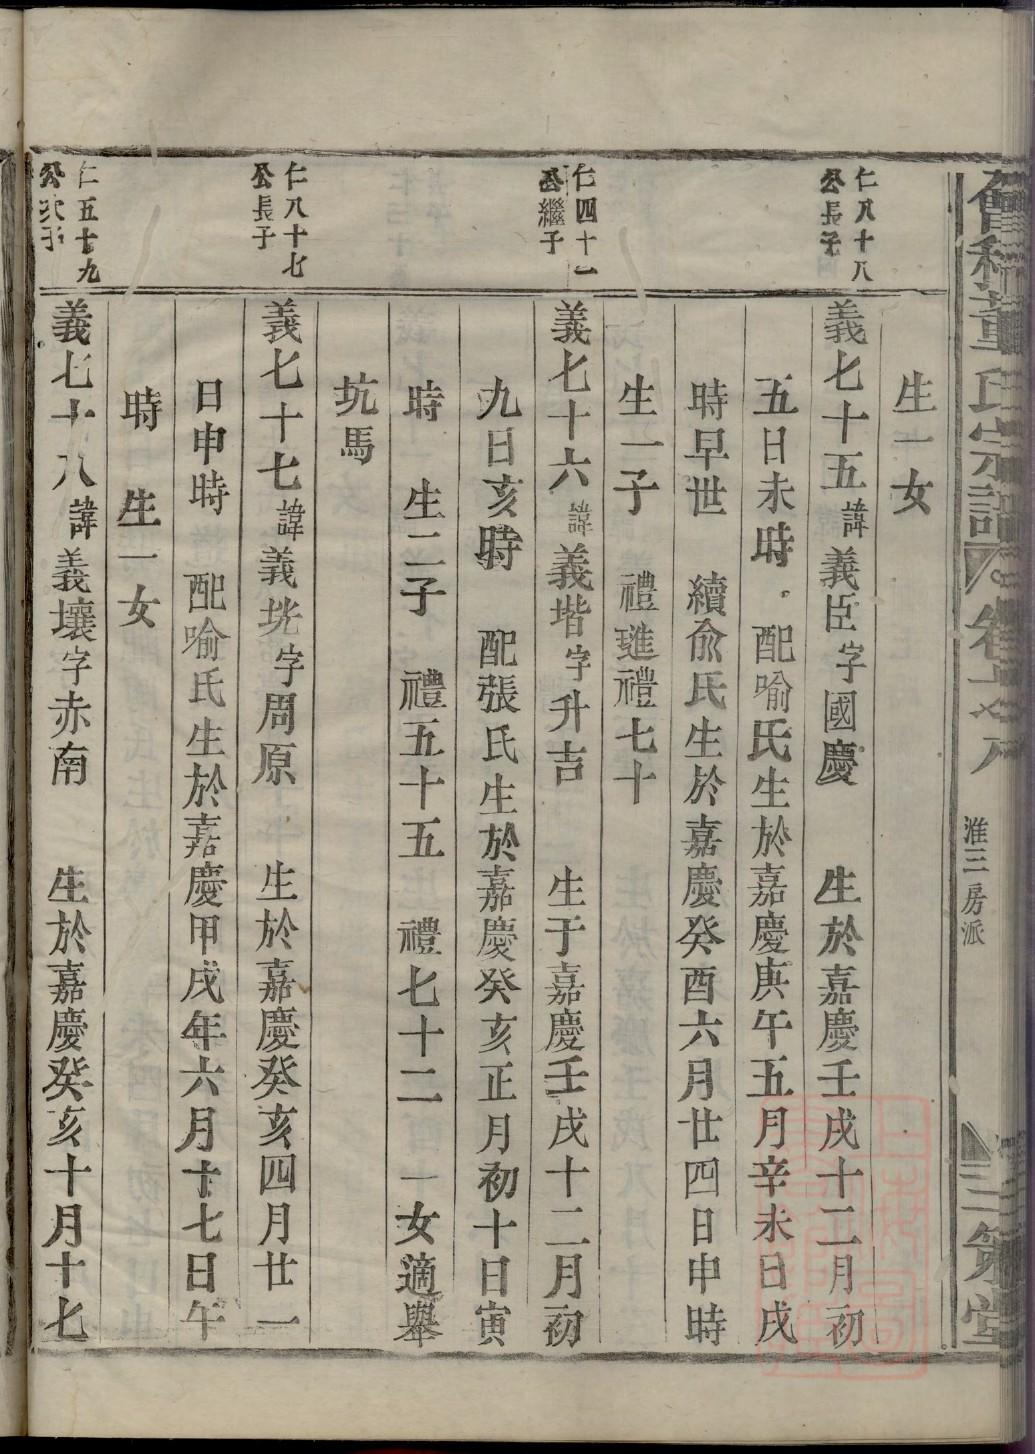 會稽董氏宗譜
淮三房派
三策堂
生一女
仁八十八
公長子
義七十五諱義臣字國慶 生於嘉慶壬戌十二月初
五日未時 配喻氏生於嘉慶庚午五月辛未日戌
時早世 續俞氏生於嘉慶癸酉六月廿四日申時
生一子 禮璡禮七十
仁四十一
公繼子
義七十六諱義堦字升吉 生于嘉慶壬戌十二月初
九日亥時 配張氏生於嘉慶癸亥正月初十日寅
時 生二子 禮五十五 禮七十二 一女適舉
坑馬
仁八十七
公長子
義七十七諱義垙字周原 生於嘉慶癸亥四月廿一
日申時 配喻氏生於嘉慶甲戌年六月十七日午
時 生一女
仁五十九
公次子
義七十八諱義壤字赤南 生於嘉慶癸亥十月十七